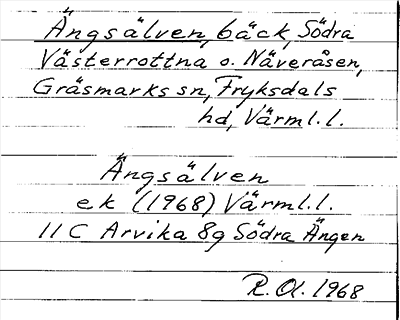 Ängsälven, bäck, Södra
Västerrottna o. Näveråsen,
Gräsmarks sn, Fryksdals
hd, Värml.l.
Ängsälven
ek (1968) Värml.l.
11 C Arvika 8g Södra Ängen
R. Ol. 1968